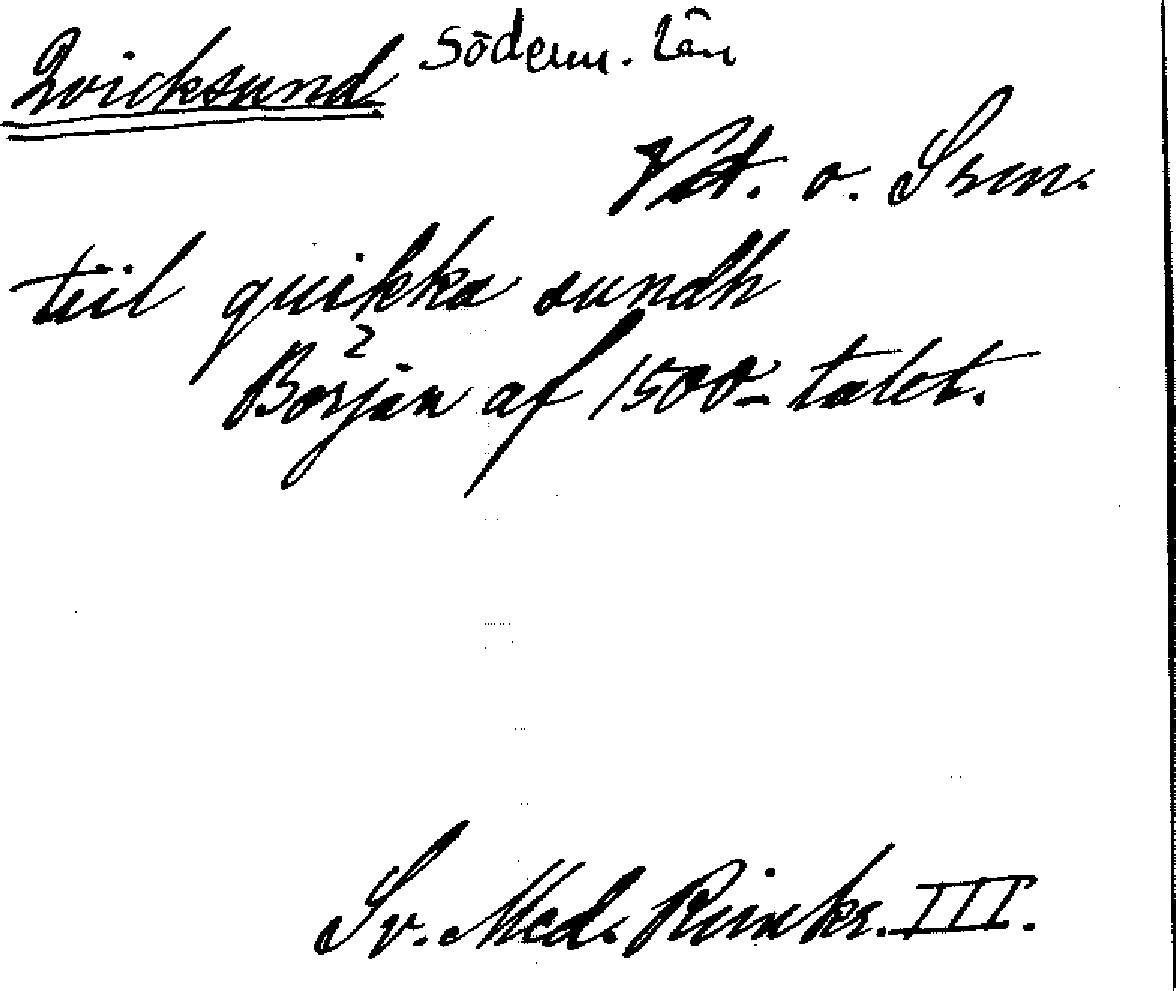 Qvicksund Söderm. Län
Vst. o. Srm.
tiil quikka sundh
2
Början af 1500-talet.
Sv. Med. Rimkr. III.